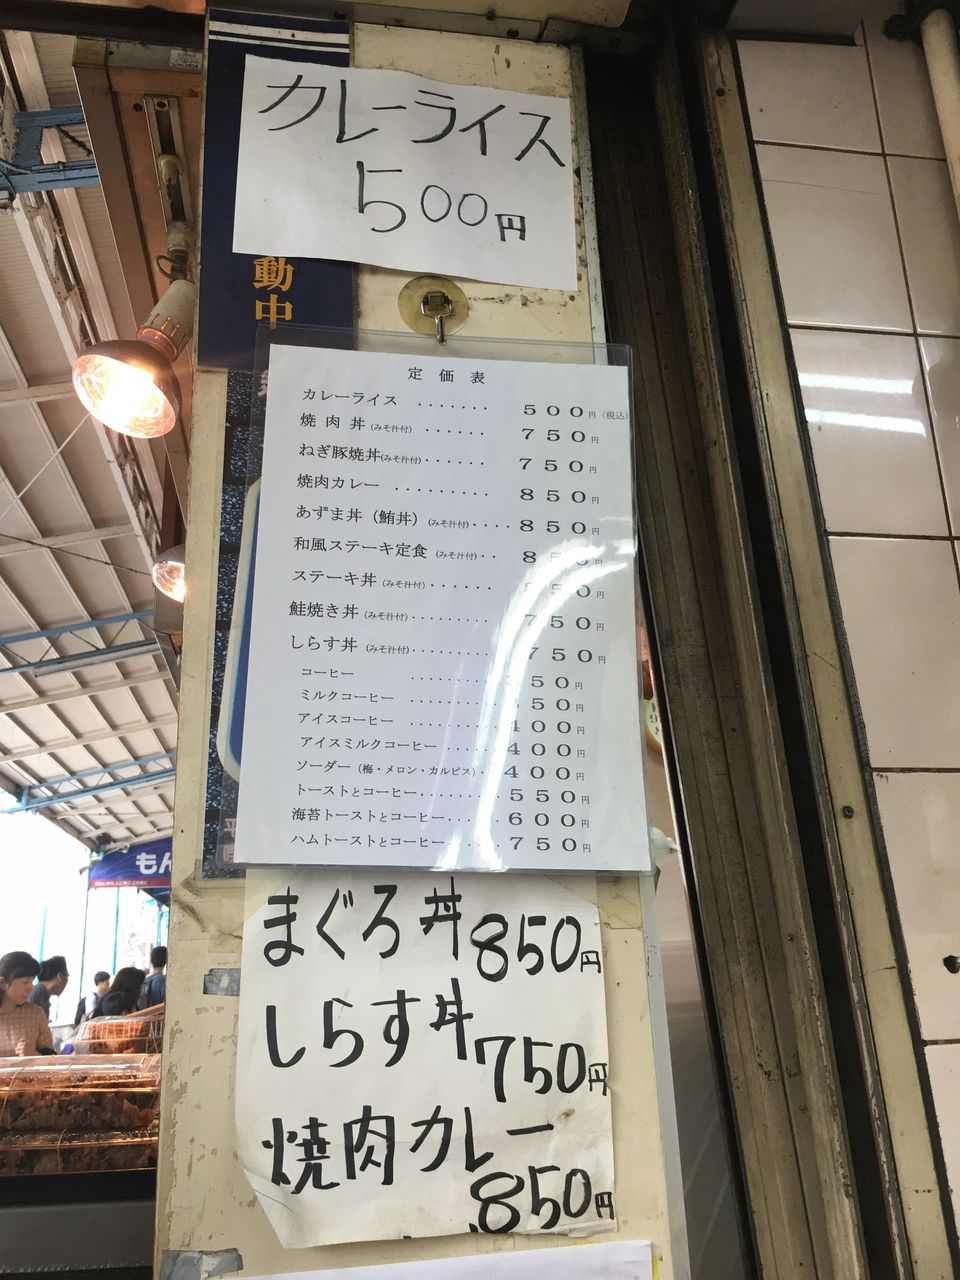 カレーライス
500円
動中
定価表
カレーライス ・・・・・・・ 500円（税込）
焼肉丼（みそ汁付） ・・・・・・ 750円
ねぎ豚焼丼（みそ汁付）・・・・・・ 750円
焼肉カレー ・・・・・・・・・ 850円
あずま丼（鮪丼）（みそ汁付）・・・・ 850円
和風ステーキ定食（みそ汁付）・・ 850円
ステーキ丼（みそ汁付）・・・・・・ 850円
鮭焼き丼（みそ汁付）・・・・・・・・ 750円
しらす丼（みそ汁付）・・・・・・・・ 750円
コーヒー ・・・・・・・・・ 350円
ミルクコーヒー ・・・・・・・・ 350円
アイスコーヒー ・・・・・・・・ 400円
アイスミルクコーヒー ・・・・・ 400円
ソーダー（梅・メロン・カルピス）・・ 400円
トーストとコーヒー・・・・・・・・ 550円
海苔トーストとコーヒー・・・・・ 600円
ハムトーストとコーヒー・・・・・ 750円
もん
まぐろ丼 850円
しらす丼 750円
焼肉カレー
850円